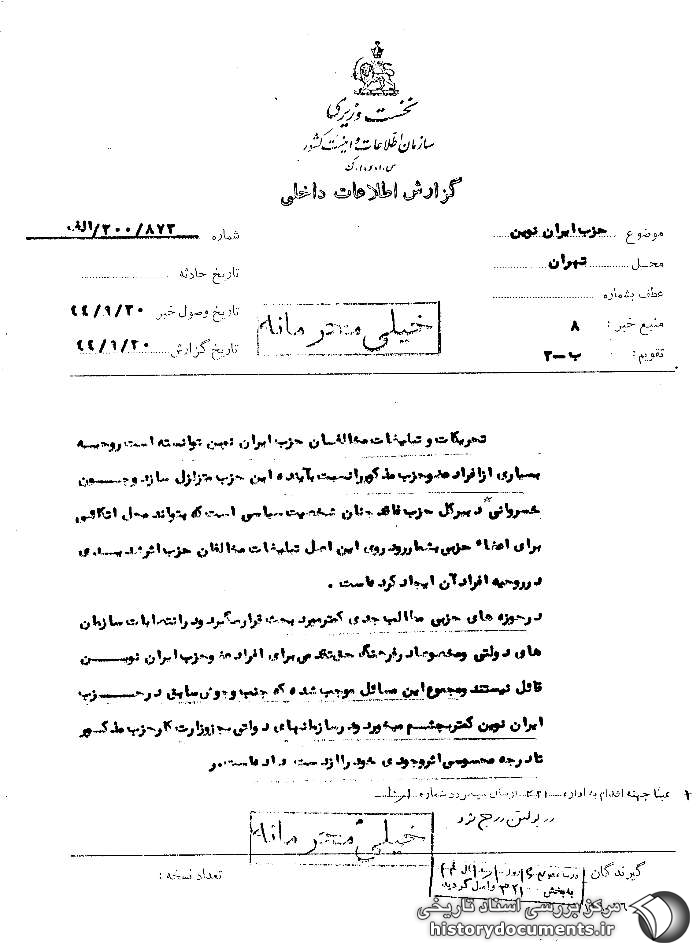 نخست وزیری
سازمان اطلاعات و امنیت کشور
س.ا.و.ا.ک
گزارش اطلاعات داخلی
موضوع حزب ایران نوین
شماره ۳۰۰/۸۷۳/الف
محل تهران
تاریخ حادثه
عطف بشماره
تاریخ وصول خبر ۴۴/۹/۲۰
منبع خبر : ۸
تاریخ گزارش ۴۴/۹/۲۰
تقویم : ب-۲
خیلی محترمانه
تحریکات و تبلیغات مخالفان حزب ایران نوین توانسته است روحیه
بسیاری از افراد عضو حزب مذکور را نسبت بآینده این حزب متزلزل سازد و چون
خسروانی دبیرکل حزب فاقد چنان شخصیت سیاسی است که بتواند محل اتکائی
برای اعضاء حزبی بشمار رود روی این اصل تبلیغات مخالفان حزب اثر شدیدی
در روحیه افراد آن ایجاد کرده است .
در حوزه های حزبی مطالب جدی کمتر مورد بحث قرار میگیرد و در انتصابات سازمان
های دولتی و مخصوصا در فرهنگ حق تقدمی برای افراد عضو حزب ایران نوین
قائل نیستند و مجموع این مسائل موجب شده که جنب و جوش سابق در حزب
ایران نوین کمتر بچشم میخورد و در سازمانهای دولتی بجز وزارت کار حزب مذکور
تا درجه محسوسی اثر وجودی خود را از دست داده است. و
عینا جهته اقدام به اداره ۳۲۱ ارسال میگردد شماره
در بولتن درج شود
خیلی محترمانه
گیرندگان
تعداد نسخه :
به بخش ۳۲۱ واصل گردید
مرکز بررسی اسناد تاریخی
historydocuments.ir